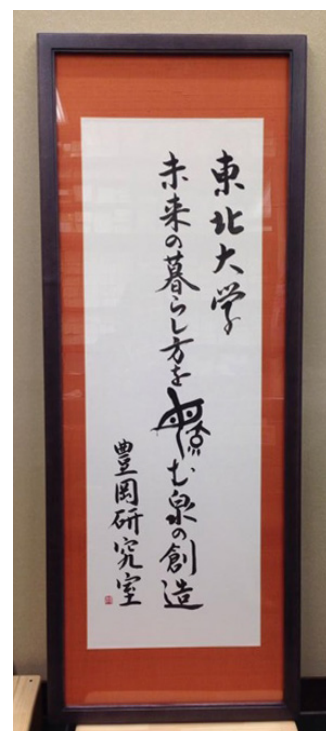 東北大学
未来の暮らし方を育む泉の創造
豊岡研究室